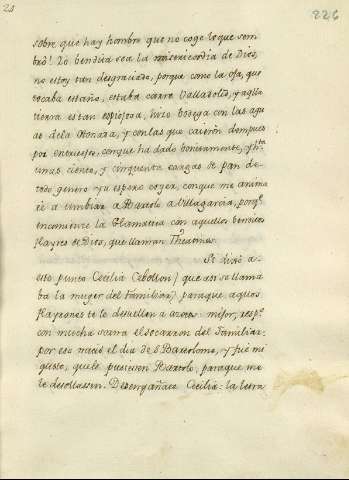 20
226
sobre que hay hombre que no coge lo que sem
bró! Yo bendita sea la misericordia de Dios,
no estoy tan desgraciado, porque como la oja, que
tocaba estaño, estaba cárra Valladolid, y aqlla
tierra es tan espiojosa, hizo bodega con las agu
as dela Otonada, y con las que caieron dempues
por entrexejos, conque ha dado bonicamente, y hta
unas ciento, y cinquenta cargas de pan de
todo genero ya espero coger, conque me anima
ré a embiar a Bartolo a Villagarcia, porq.e
encomienze la Glamatica con aquellos benditos
flayres de Dios, que llaman Theatinos.
Si dixo a
esto punto Cecilia Cebollon) que asi se llama
ba la muger del Familiar) paraque aquos
Flayrones te le desuellen a azotes: mejor, resp.o
con mucha sorna el socarron del Familiar:
por eso nació el dia de S. Bartolome, y fué mi
gusto, que le pusiesen Bartolo, paraque me
le desollassen. Desengañate Cecilia: la letra